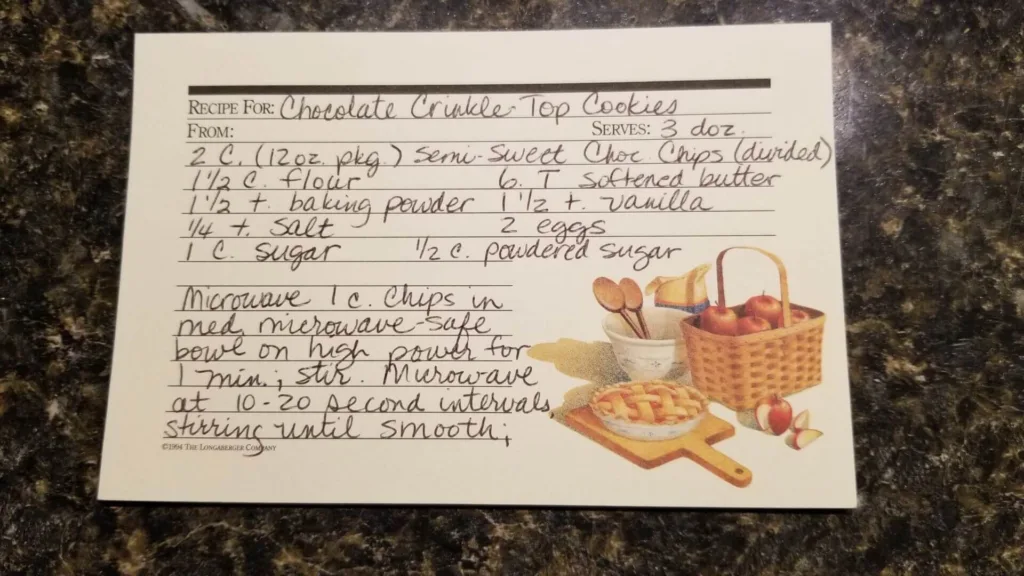 RECIPE FOR: Chocolate Crinkle-Top Cookies
FROM: SERVES: 3 doz.
2 C. (12 oz. pkg.) Semi-Sweet Choc. Chips (divided)
1 1/2 C. flour 6 T softened butter
1 1/2 t. baking powder 1 1/2 t. vanilla
1/4 t. salt 2 eggs
1 C. sugar 1/2 c. powdered sugar
Microwave 1 c. chips in
med. microwave-safe
bowl on high power for
1 min.; stir. Microwave
at 10-20 second intervals,
stirring until smooth;
©1994 THE LONGABERGER COMPANY